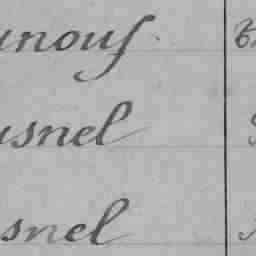 unouf
usnel
snel